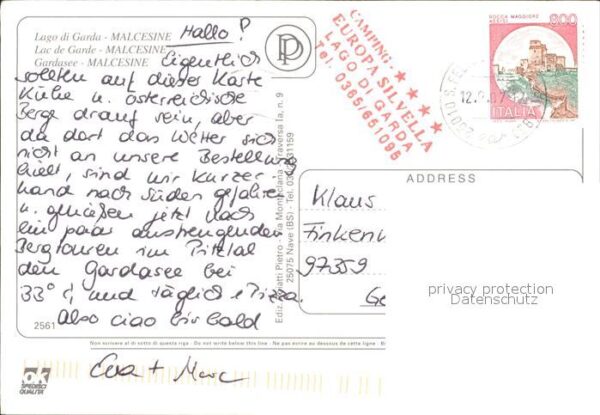 Lago di Garda - MALCESINE
Lac de Garde - MALCESINE
Gardasee - MALCESINE
Hallo!
Eigentlich
sollten auf dieser Karte
Kühe u. österreichische
Berge drauf sein, aber
da dort das Wetter sich
nicht an unsere Bestellung
hielt, sind wir kurzer-
hand nach Süden gefahren
u. genießen jetzt nach
ein paar anstrengenden
Bergtouren im Pitztal
den Gardasee bei
33° C und täglich Pizza.
Also ciao bis bald
Eva + Marc
2561
PD
Ediz. Pietro - Via Montiana Traversa Ia, n. 9
25075 Nave (BS) - Tel.
CAMPING ★★★★
EUROPA SILVELLA
LAGO DI GARDA
Tel. 0365/651095
ROCCA MAGGIORE
ASSISI
800
ITALIA
ADDRESS
Klaus
Finken
97359
Ge
privacy protection
Datenschutz
Non scrivere al di sotto di questa riga - Do not write below this line - Ne pas écrire au dessous de cette ligne
OK
SPEDISCI
QUALITÀ